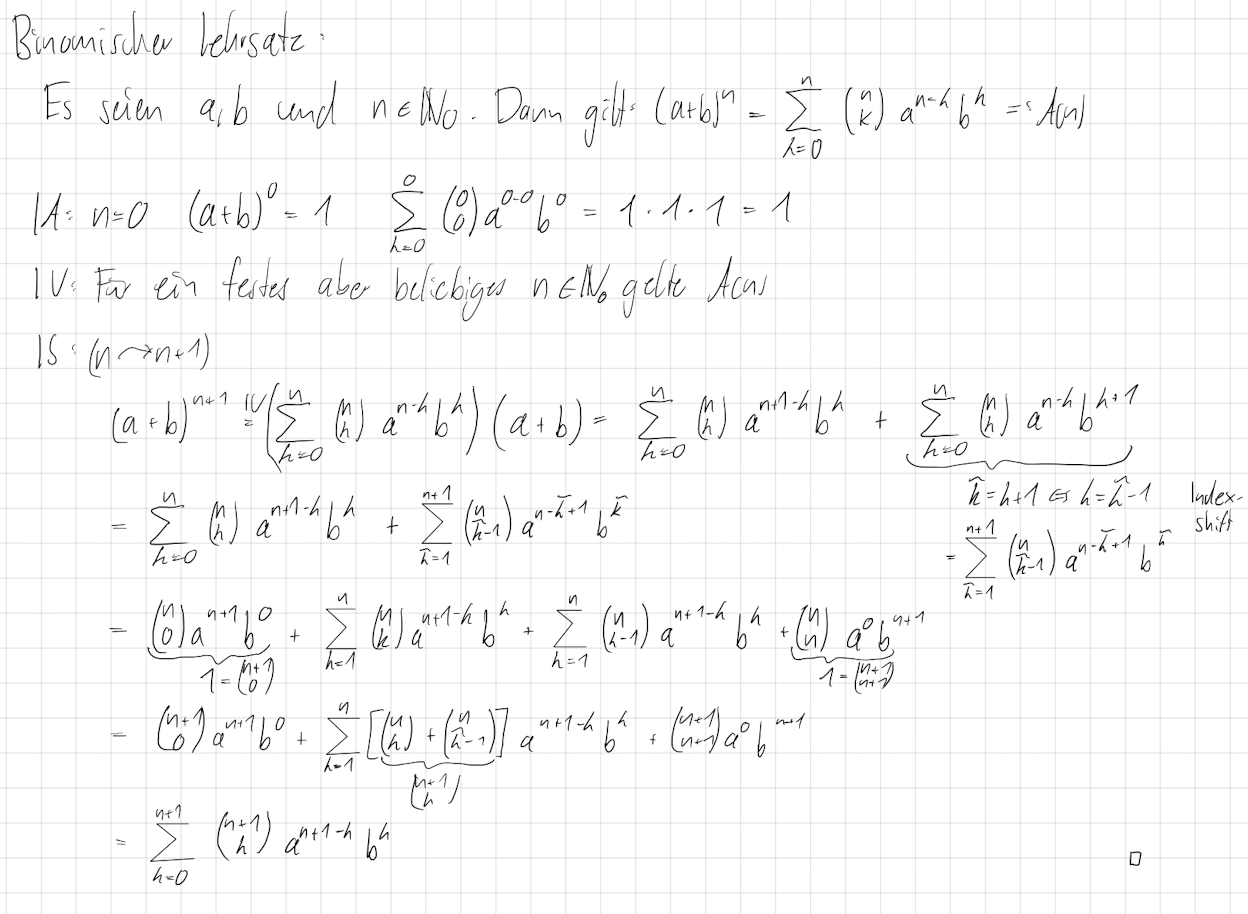 Binomischer Lehrsatz:
Es seien a,b und n∈ℕ₀. Dann gilt: (a+b)^n = ∑_{k=0}^{n} (n k) a^{n-k} b^k =: A(n)
IA: n=0 (a+b)^0 = 1 ∑_{k=0}^{0} (0 0) a^{0-0} b^0 = 1·1·1 = 1
IV: Für ein festes aber beliebiges n∈ℕ₀ gelte A(n)
IS: (n ⤳ n+1)
(a+b)^{n+1} =^{IV} (∑_{k=0}^{n} (n k) a^{n-k} b^k) (a+b) = ∑_{k=0}^{n} (n k) a^{n+1-k} b^k + ∑_{k=0}^{n} (n k) a^{n-k} b^{k+1}
k̃ = k+1 ⇔ k = k̃-1 Index-
shift
= ∑_{k=0}^{n} (n k) a^{n+1-k} b^k + ∑_{k̃=1}^{n+1} (n k̃-1) a^{n-k̃+1} b^{k̃}
= ∑_{k̃=1}^{n+1} (n k̃-1) a^{n-k̃+1} b^{k̃}
= (n 0) a^{n+1} b^0 + ∑_{k=1}^{n} (n k) a^{n+1-k} b^k + ∑_{k=1}^{n} (n k-1) a^{n+1-k} b^k + (n n) a^0 b^{n+1}
1 = (n+1 0) 1 = (n+1 n+1)
= (n+1 0) a^{n+1} b^0 + ∑_{k=1}^{n} [(n k) + (n k-1)] a^{n+1-k} b^k + (n+1 n+1) a^0 b^{n+1}
(n+1 k)
= ∑_{k=0}^{n+1} (n+1 k) a^{n+1-k} b^k
□